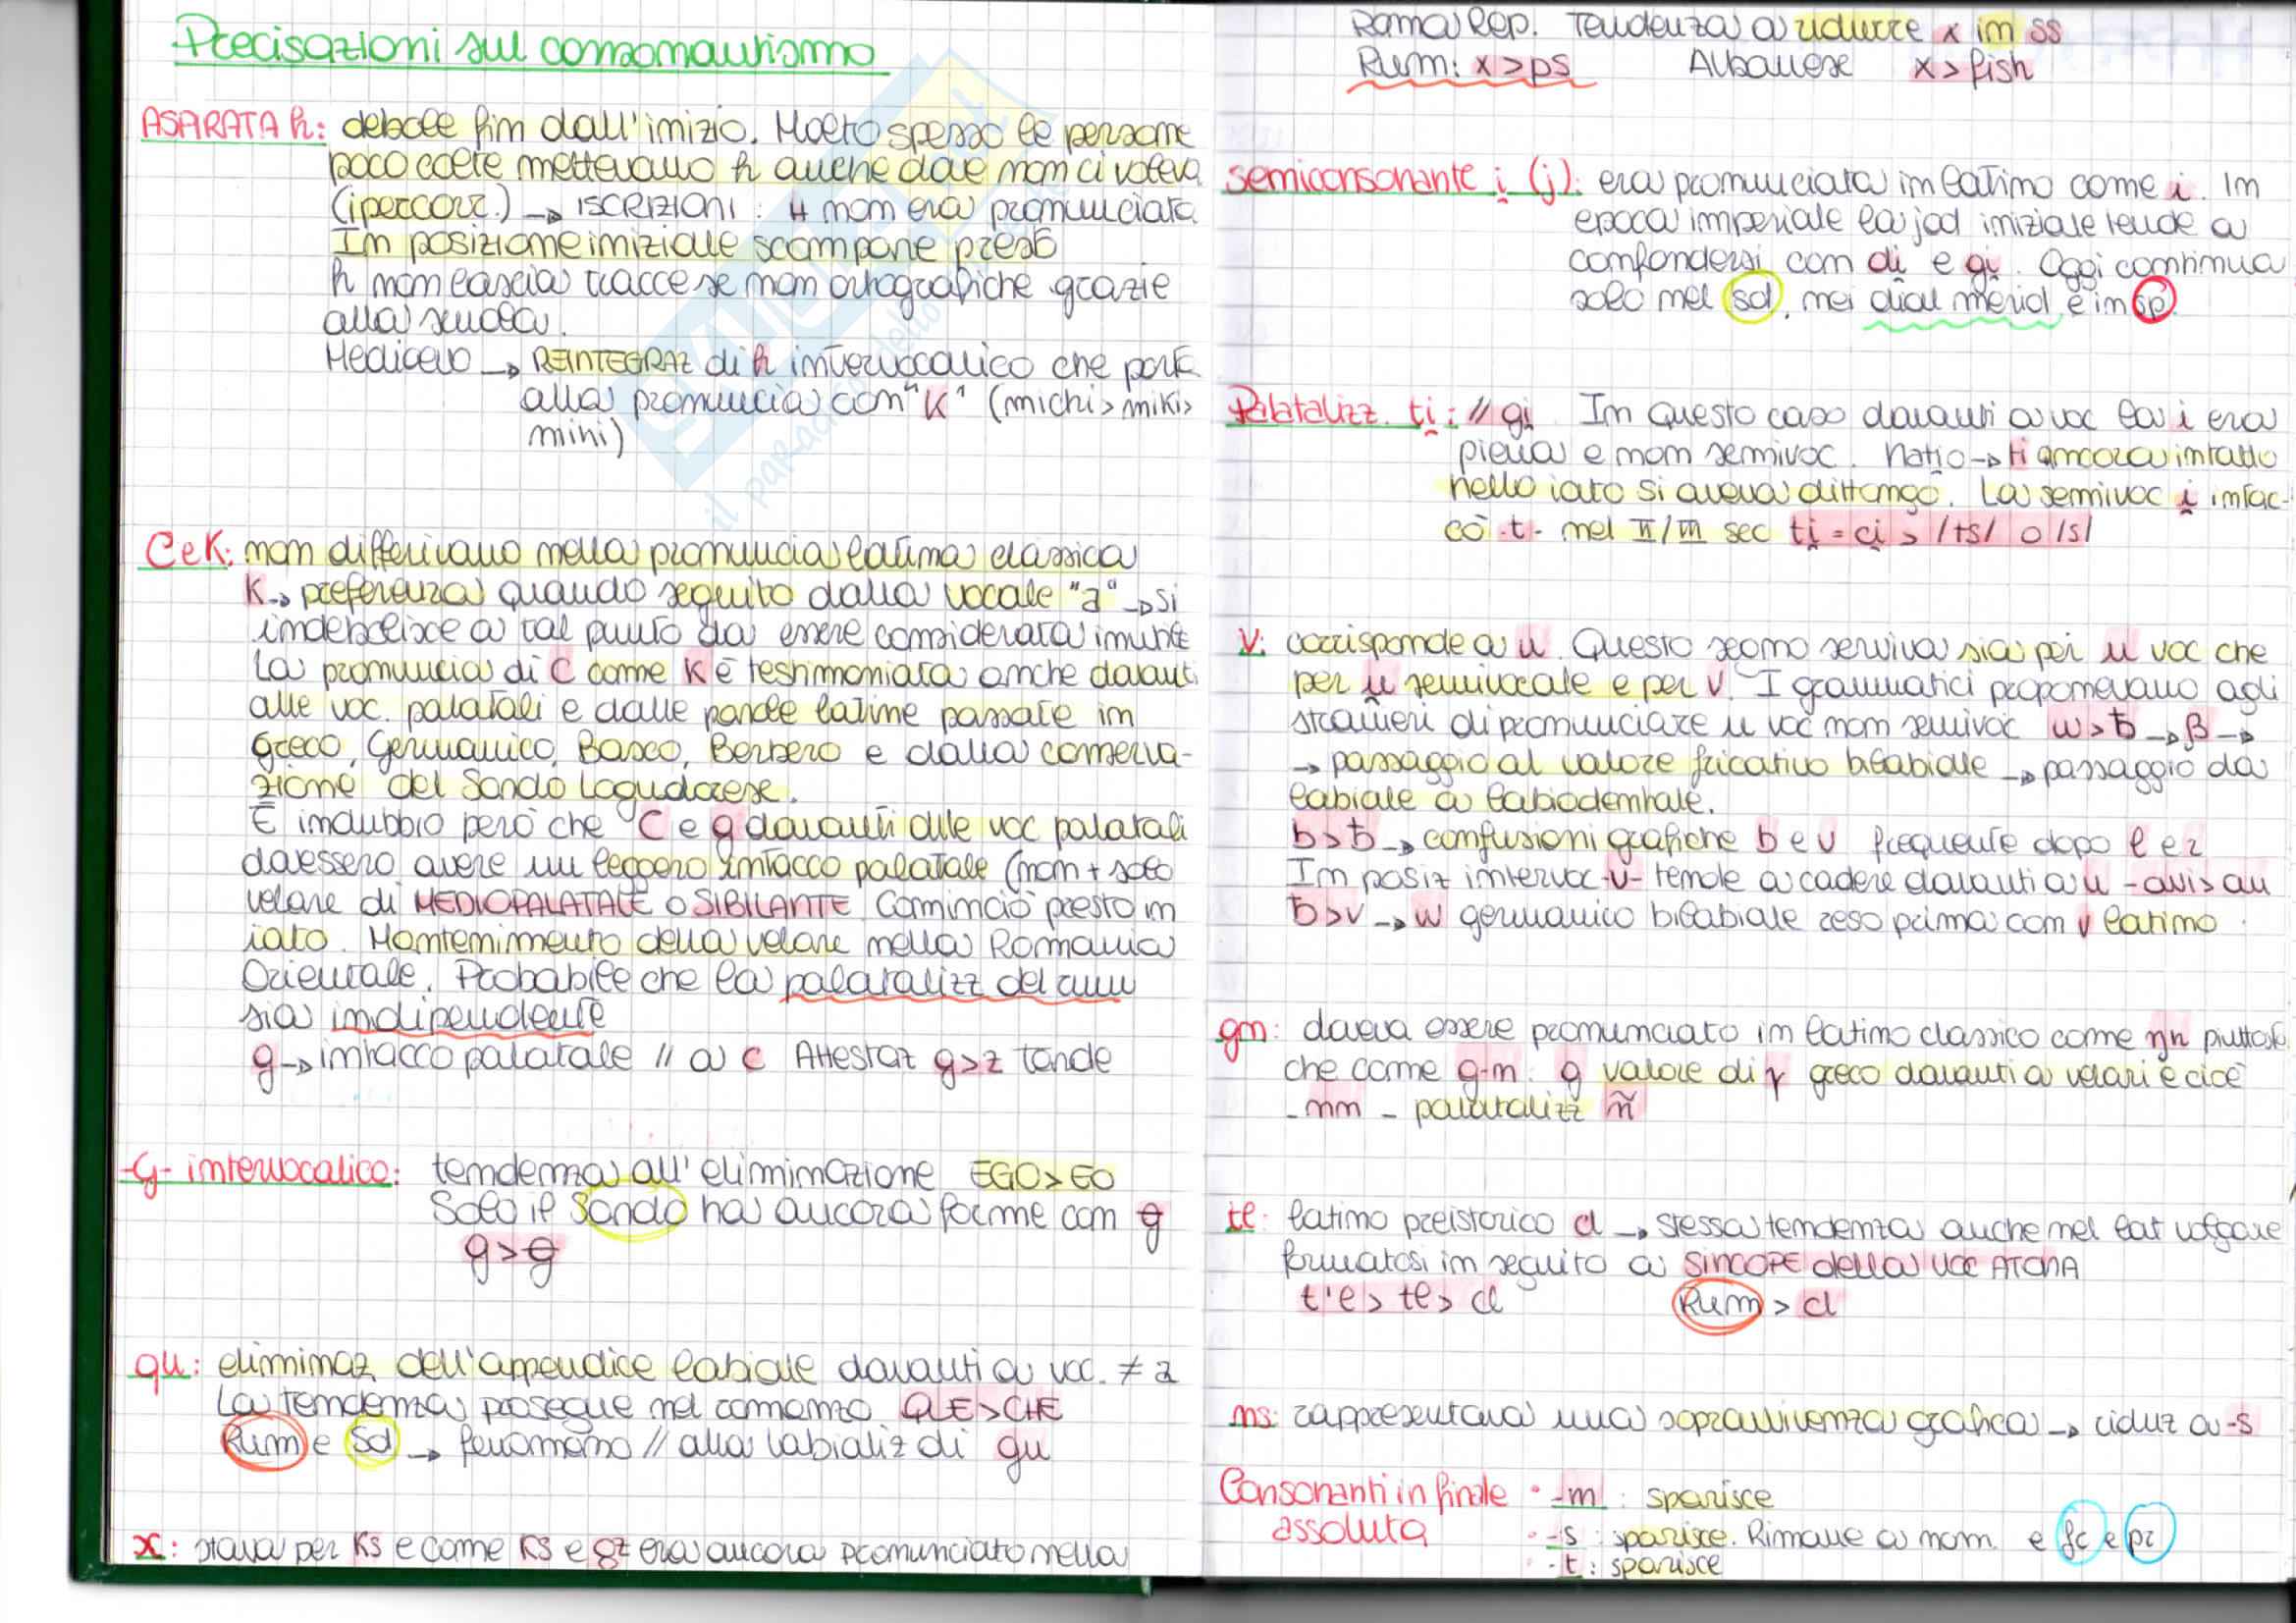 Precisazioni sul consonantismo
ASPIRATA h: debole fin dall'inizio. Molto spesso le persone
poco colte mettevano h anche dove non ci voleva
(ipercorr.) → ISCRIZIONI: H non era pronunciata
In posizione iniziale scompare presto
h non lascia tracce se non ortografiche grazie
alla scuola.
Medioevo → REINTEGRAZ di h intervocalico che porta
alla pronuncia con "K" (michi > miki >
mihi)
C e K: non differivano nella pronuncia latina classica
K → preferenza quando seguito dalla vocale "a" → si
indebolisce a tal punto da essere considerata inutile
La pronuncia di C come K è testimoniata anche davanti
alle voc. palatali e dalle parole latine passate in
Greco, Germanico, Basco, Berbero e dalla conserva-
zione del Sardo Logudorese.
È indubbio però che C e g davanti alle voc palatali
dovessero avere un leggero intacco palatale (non + solo
velare di MEDIOPALATALE O SIBILANTE Cominciò presto in
iato. Mantenimento della velare nella Romania
Orientale. Probabile che la palatalizz del rum
sia indipendente
g → intacco palatale // a C Attestaz g > z tarde
-G- intervocalico: tendenza all'eliminazione EGO > EO
Solo il Sardo ha ancora forme con g
g > g
qu: eliminaz dell'appendice labiale davanti a voc. ≠ a
La tendenza prosegue nel romanzo QUE > CHE
Rum e Sd → fenomeno // alla labializ di gu
x: stava per Ks e come Ks e gz era ancora pronunciato nella
Roma Rep. Tendenza a ridurre x in ss
Rum: x > ps Albanese x > fish
semiconsonante i̯ (j): era pronunciata in latino come i. In
epoca imperiale la jod iniziale tende a
confondersi con di̯ e gi̯. Oggi continua
solo nel sd, nei dial merid e in sp.
Palatalizz. ti̯: // gi̯ In questo caso davanti a voc la i era
piena e non semivoc. Natio → ti ancora intatto
nello iato si aveva dittongo. La semivoc i̯ intac-
cò -t- nel II/III sec ti̯ = ci̯ > /ts/ o /s/
V: corrisponde a u. Questo segno serviva sia per u voc che
per u̯ semivocale e per v. I grammatici proponevano agli
stranieri di pronunciare u voc non semivoc w > ƀ → β →
→ passaggio al valore fricativo bilabiale → passaggio da
labiale a labiodentale.
b > ƀ → confusioni grafiche b e v frequente dopo l e r
In posiz intervoc -v- tende a cadere davanti a u -avis > au
ƀ > v → w germanico bilabiale reso prima con v latino
gn: doveva essere pronunciato in latino classico come ŋn piuttosto
che come g-n: g valore di γ greco davanti a velari e cioè
-nn- palatalizz ñ
tl: latino preistorico cl → stessa tendenza anche nel lat volgare
formatosi in seguito a SINCOPE della voc ATONA
t'l > tl > cl Rum > cl
ns: rappresentava una sopravvivenza grafica → riduz a -s
Consonanti in finale • -m : sparisce
assoluta • -s : sparisce. Rimane a nom. e fc e pr
• -t : sparisce